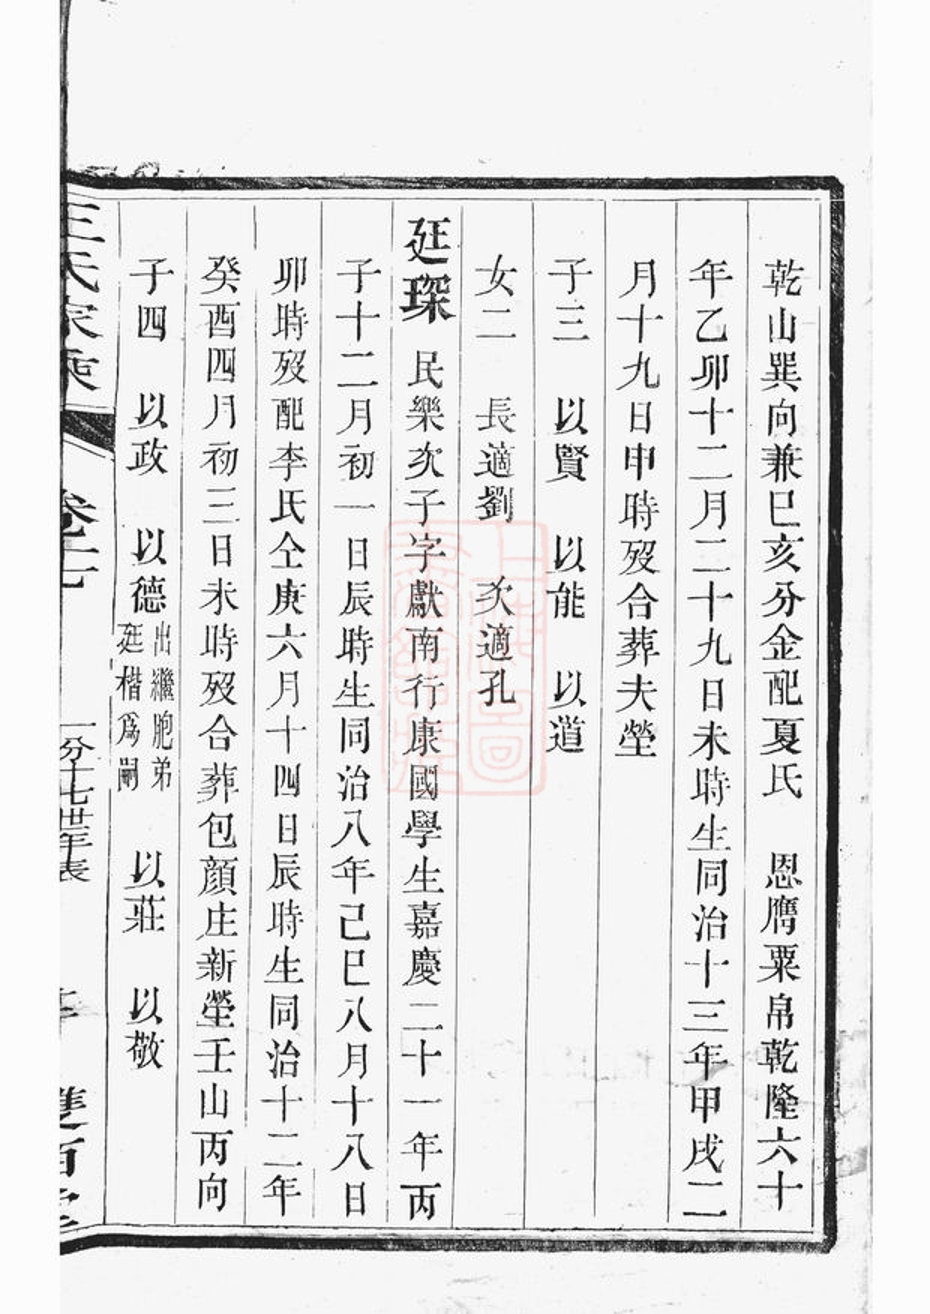 乾山巽向兼巳亥分金配夏氏　恩膺粟帛乾隆六十
年乙卯十二月二十九日未時生同治十三年甲戌二
月十九日申時歿合葬夫塋
子三　以賢　以能　以道
女二　長適劉　次適孔
廷琛　民樂次子字獻南行康國學生嘉慶二十一年丙
子十二月初一日辰時生同治八年己巳八月十八日
卯時歿配李氏仝庚六月十四日辰時生同治十二年
癸酉四月初三日未時歿合葬包顔庄新塋壬山丙向
子四　以政　以德出繼胞弟廷楷爲嗣　以莊　以敬
王氏家乘　卷十七　一分十七世年表